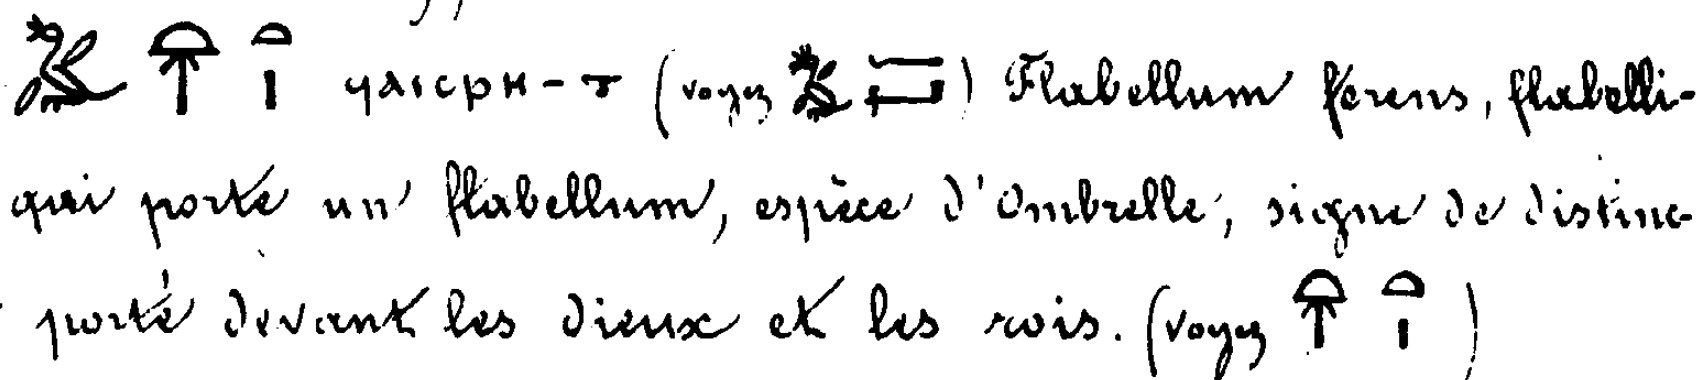 ϥⲁⲓⲥⲣⲏ-ⲧ (voyez ) Flabellum ferens, flabelli-
qui porte un flabellum, espèce d'Ombrelle, signe de distinc-
porté devant les dieux et les rois. (voyez )